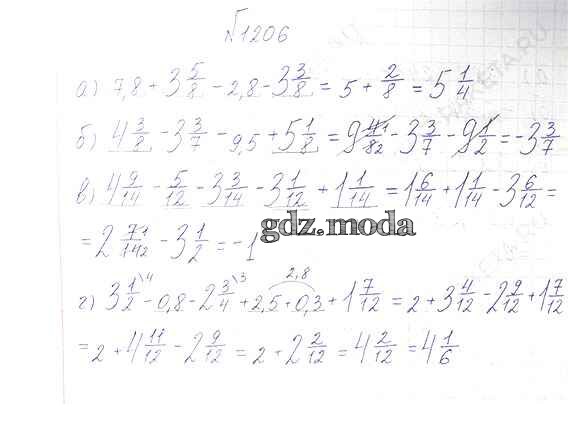 №1206
а) 7,8 + 3 5/8 - 2,8 - 3 3/8 = 5 + 2/8 = 5 1/4
б) 4 3/8 - 3 3/7 - 9,5 + 5 1/8 = 9 4 1/8 2 - 3 3/7 - 9 1/2 = -3 3/7
в) 4 9/14 - 5/12 - 3 3/14 - 3 1/12 + 1 1/14 = 1 6/14 + 1 1/14 - 3 6/12 =
= 2 7 1/14 2 - 3 1/2 = -1
gdz.moda
2,8
г) 3 1/2 \4 - 0,8 - 2 3/4 \3 + 2,5 + 0,3 + 1 7/12 = 2 + 3 4/12 - 2 9/12 + 1 7/12
= 2 + 4 11/12 - 2 9/12 = 2 + 2 2/12 = 4 2/12 = 4 1/6